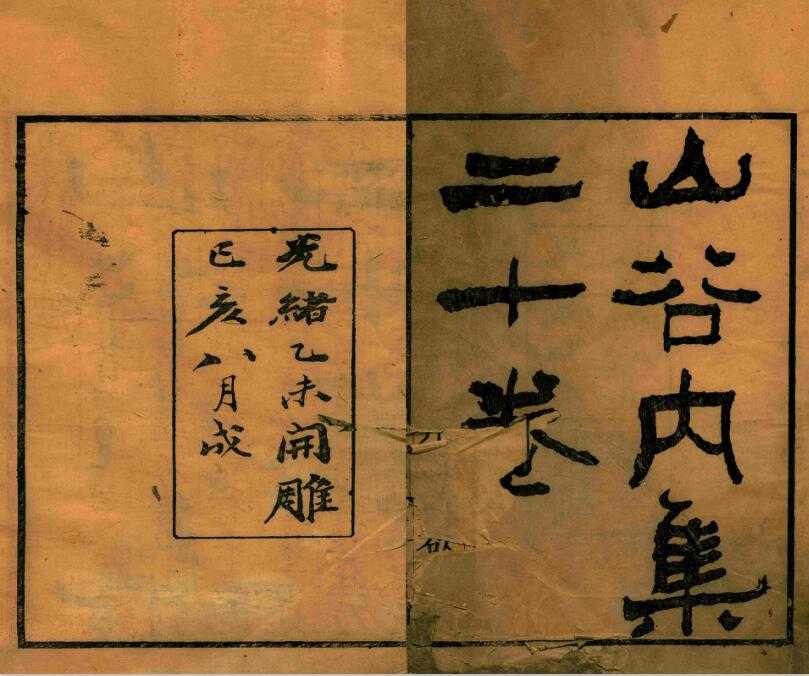 山谷内集
二十卷
光緒乙未開雕
己亥八月成